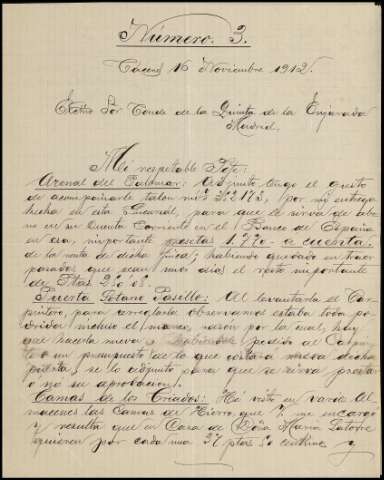 Número. 3.
Cáceres 16 Noviembre 1912.
Sor Conde de la Quinta de la Enjarada
Madrid.
Mi respetable Jefe:
Arenal del Palomar: Adjunto tengo el gusto
de acompañarle talon núm 212173, por mi entrega
hecha en esta Sucursal, para que se sirva de abo
no en su Cuenta Corriente en el Banco de España
en esa, importante pesetas 1.920 - a cuenta
de la renta de dicha finca; habiendo quedado en traer
para dos que sean unos dias el resto importante
de Ptas 230 08.
Puerta Pasillo: Al levantarla el Car
pintero, para arreglarla observamos estaba toda po
drida incluso el marco, razon por la cual, hay
que hacerla nueva y habiendole pedido al Carpin
tero un presupuesto de lo que costara nueva dicha
puerta, se lo adjunto para que se sirva prestar
o no su aprobacion.
Camas de los Criados: He visto en varios Al
macenes las Camas de Hierro, que V. me encargó
y resulta que en Casa de Doña Maria
quieren por cada una 27 ptas 50 centimos y